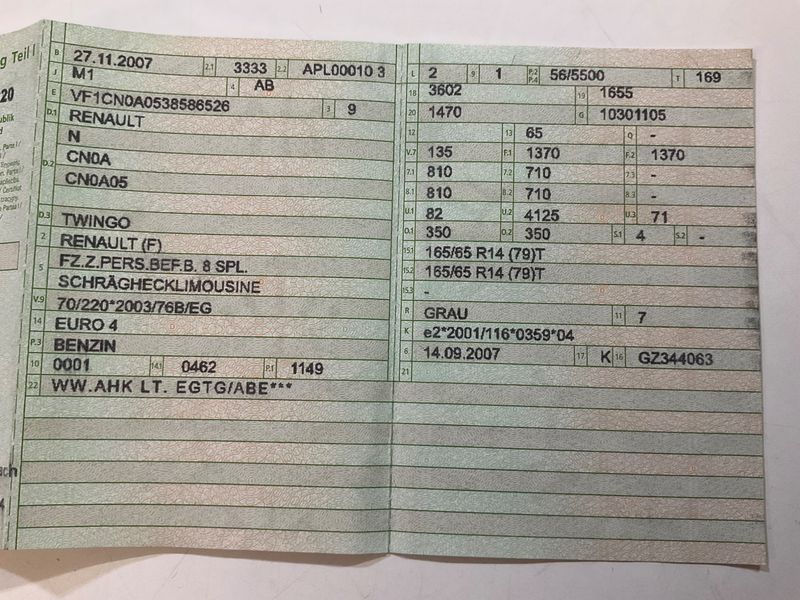 g Teil I
20
publik
B 27.11.2007 2.1 3333 2.2 APL00010 3
J M1 4 AB
E VF1CN0A0538586526 3 9
D.1 RENAULT
N
D.2 CN0A
CN0A05
D.3 TWINGO
2 RENAULT (F)
5 FZ.Z.PERS.BEF.B. 8 SPL.
SCHRÄGHECKLIMOUSINE
V.9 70/220*2003/76B/EG
14 EURO 4
P.3 BENZIN
10 0001 14.1 0462 P.1 1149
22 WW.AHK LT. EGTG/ABE***
L 2 9 1 P.2 P.4 56/5500 T 169
18 3602 19 1655
20 1470 G 10301105
12 13 65 Q -
V.7 135 F.1 1370 F.2 1370
7.1 810 7.2 710 7.3 -
8.1 810 8.2 710 8.3 -
U.1 82 U.2 4125 U.3 71
O.1 350 O.2 350 S.1 4 S.2 -
15.1 165/65 R14 (79)T
15.2 165/65 R14 (79)T
15.3 -
R GRAU 11 7
K e2*2001/116*0359*04
6 14.09.2007 17 K 16 GZ344063
21